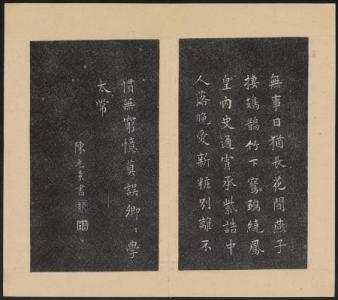 無事日猶長花間燕子
棲鳷鵲竹下鵉鶵繞鳳
皇內史通宵承紫誥中
人落晚愛新妝別離不
惜無窮憶莫誤卿〻學
太常
陳元素書